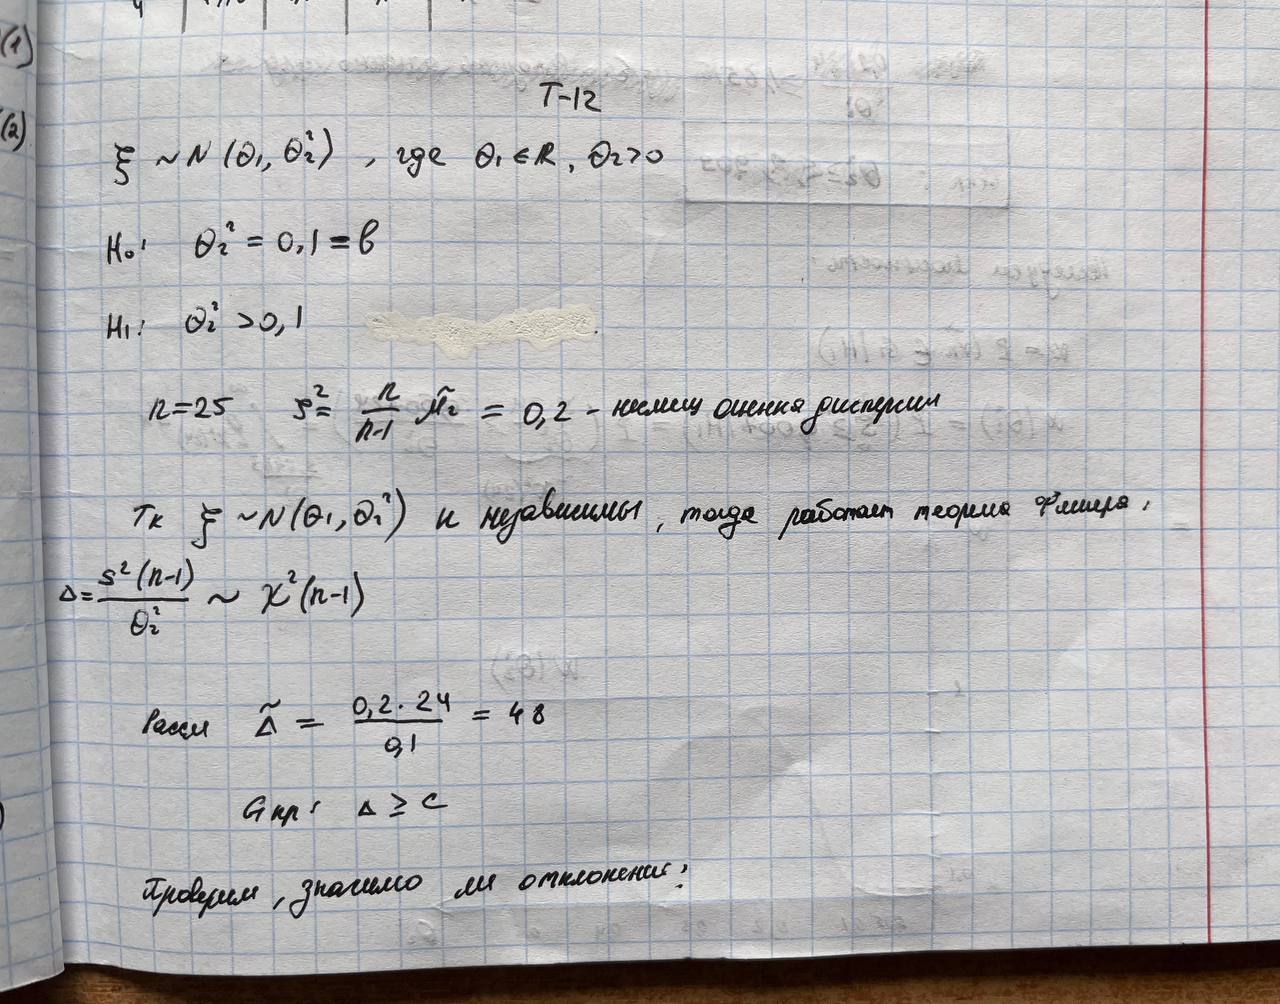 (1)
(2)
T-12
ξ ~ N(θ₁, θ₂²), где θ₁ ∈ R, θ₂>0
H₀: θ₂² = 0,1 = b
H₁: θ₂² >0,1
n=25 s² = n/(n-1) μ̃₂ = 0,2 - несмещ оценка дисперсии
Тк ξ ~N(θ₁, θ₂²) и независимы, тогда работает теорема Фишера:
Δ = s²(n-1)/θ₂² ~ χ²(n-1)
Рассм Δ̃ = 0,2·24/0,1 = 48
Gкр: Δ ≥ C
Проверим, значимо ли отклонение: